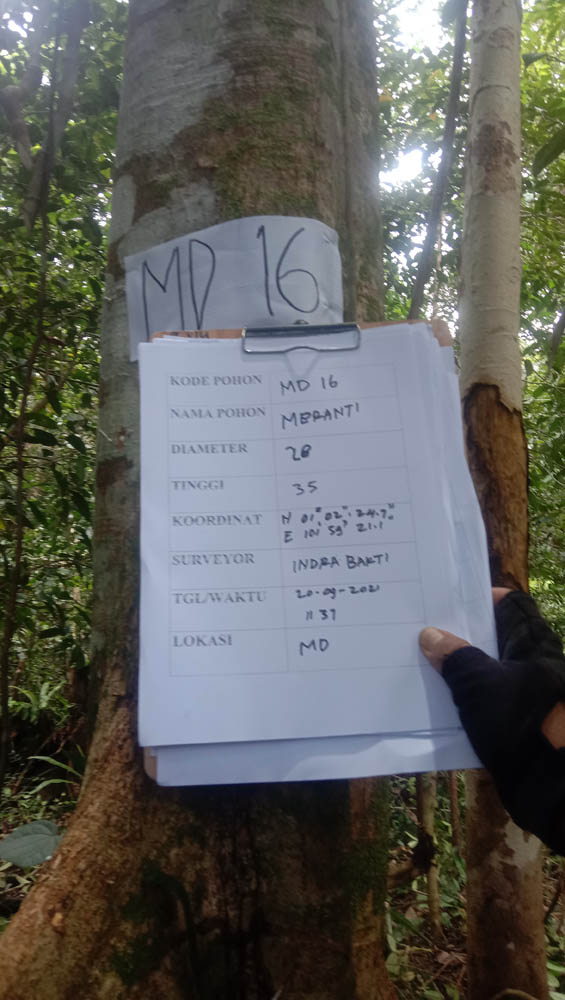 MD 16
KODE POHON MD 16
NAMA POHON MERANTI
DIAMETER 28
TINGGI 35
KOORDINAT N 01° 02' 24.7"
E 101° 59' 21.1"
SURVEYOR INDRA BAKTI
TGL/WAKTU 20-09-2021
11 37
LOKASI MD